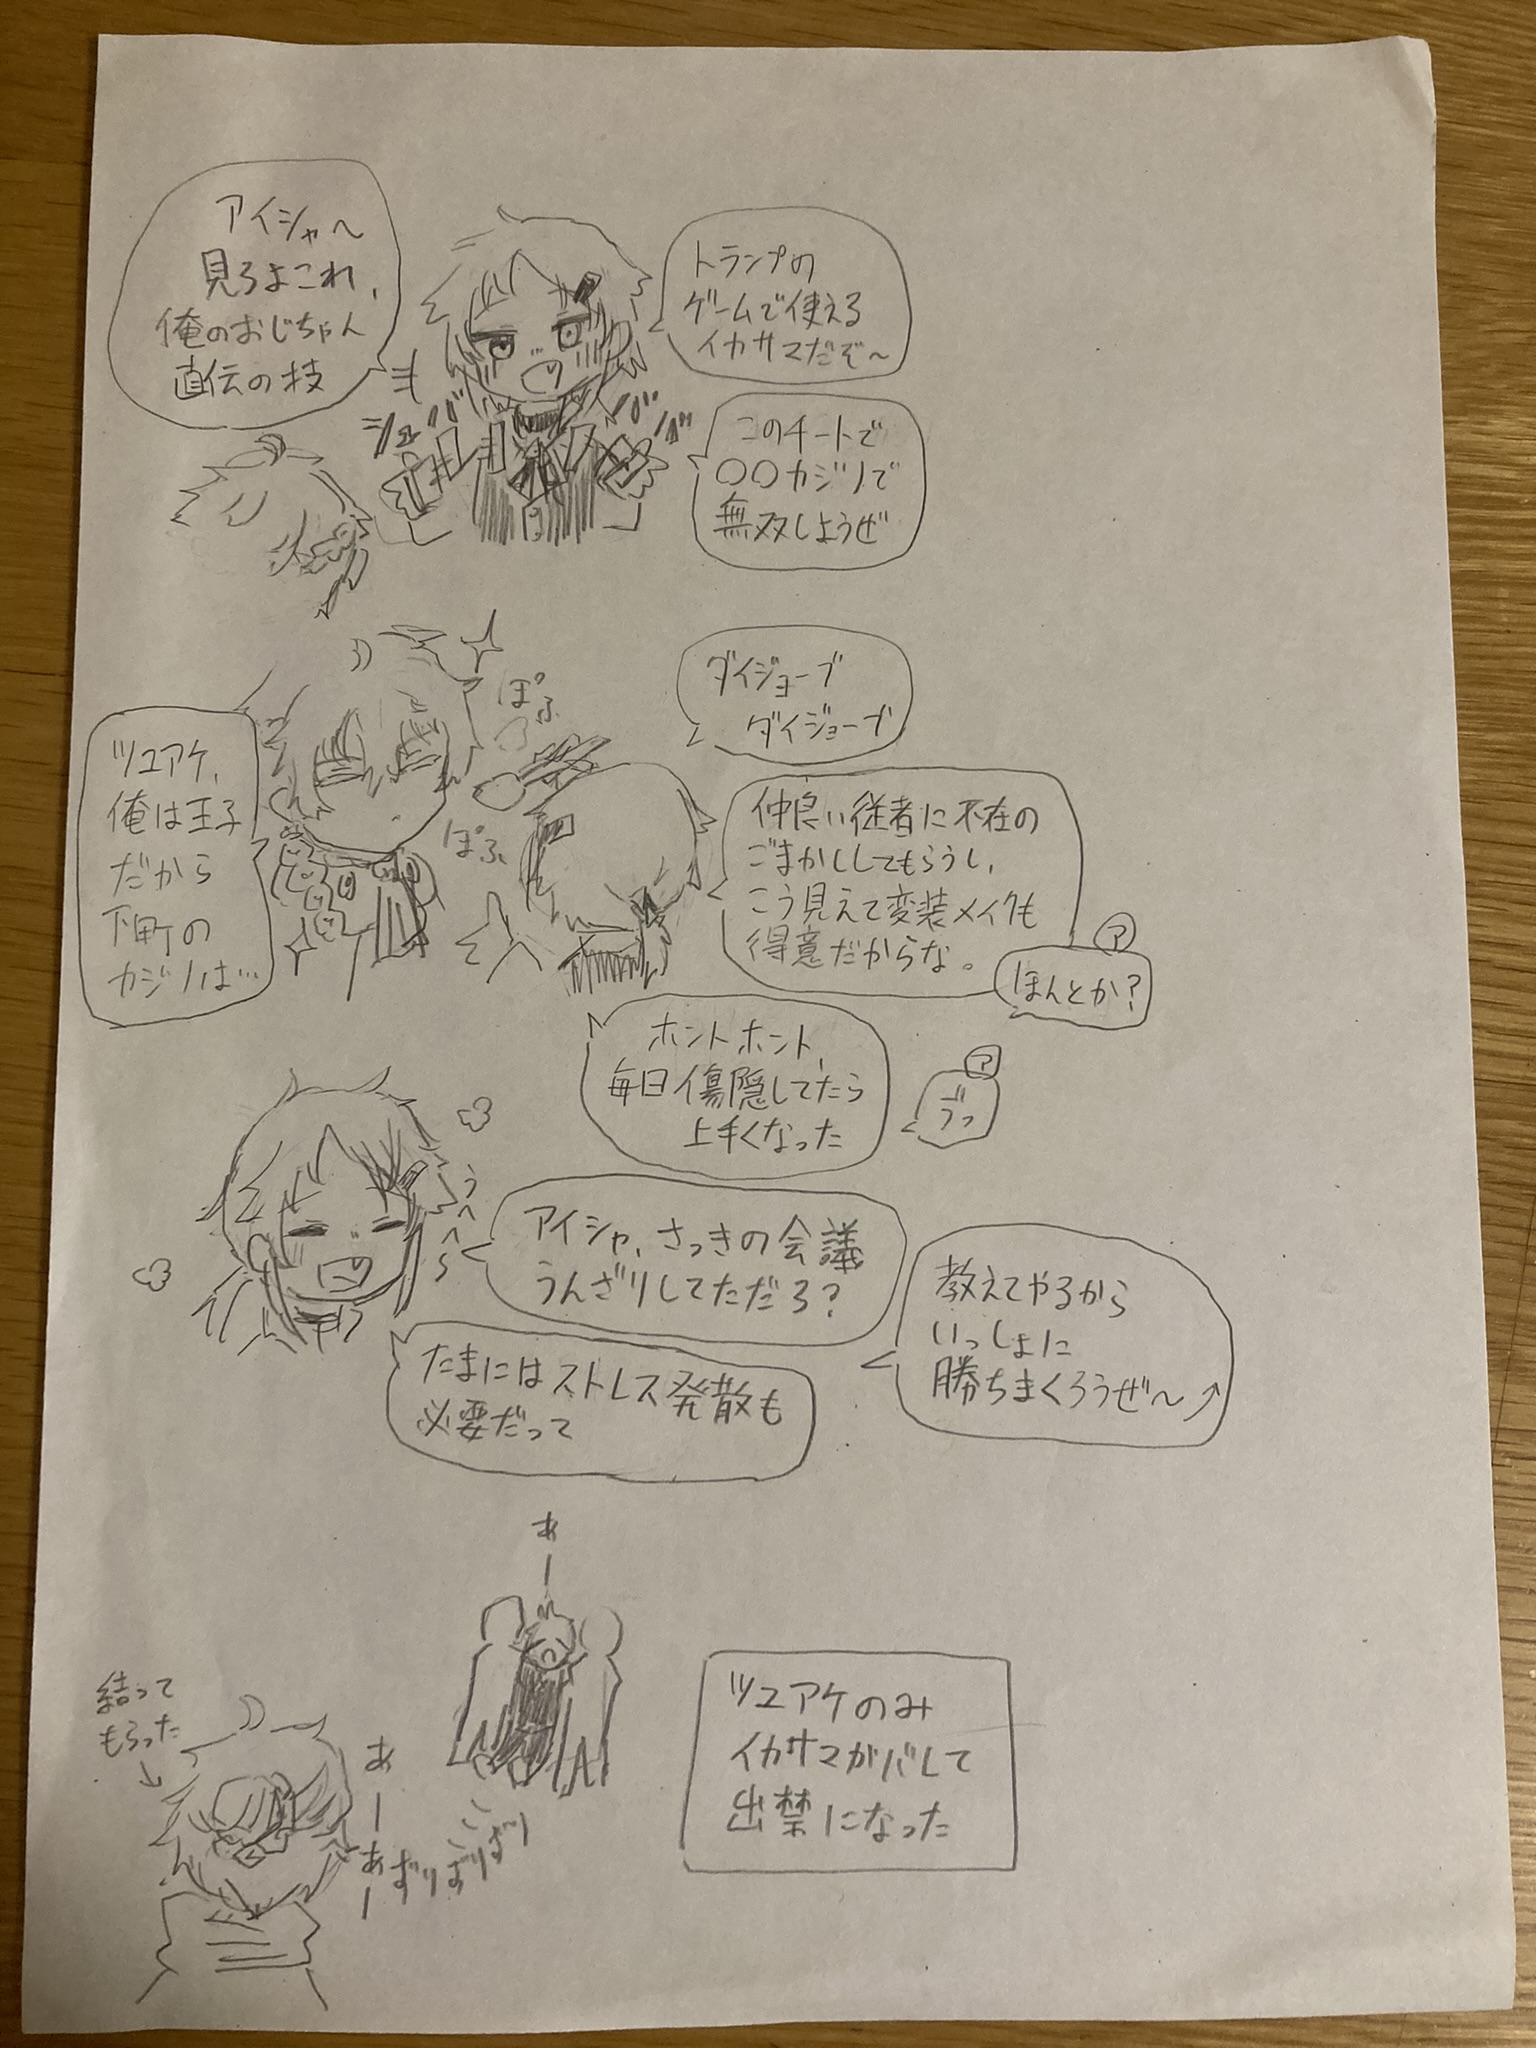 アイシャ～
見ろよこれ、
俺のおじちゃん
直伝の技
トランプの
ゲームで使える
イカサマだぞ～
このチートで
〇〇カジノで
無双しようぜ
ツユアケ、
俺は王子
だから
下町の
カジノは…
ぽふ
ぽふ
ダイジョーブ
ダイジョーブ
仲良い従者に不在の
ごまかししてもらうし、
こう見えて変装メイクも
得意だからな。
ア
ほんとか?
ホントホント、
毎日傷隠してたら
上手くなった
ア
うへへ～
アイシャ、さっきの会議
うんざりしてただろ?
たまにはストレス発散も
必要だって
教えてやるから
いっしょに
勝ちまくろうぜ～↗
あー
結って
もらった
↓
あー
あー
ツユアケのみ
イカサマがバレて
出禁になった